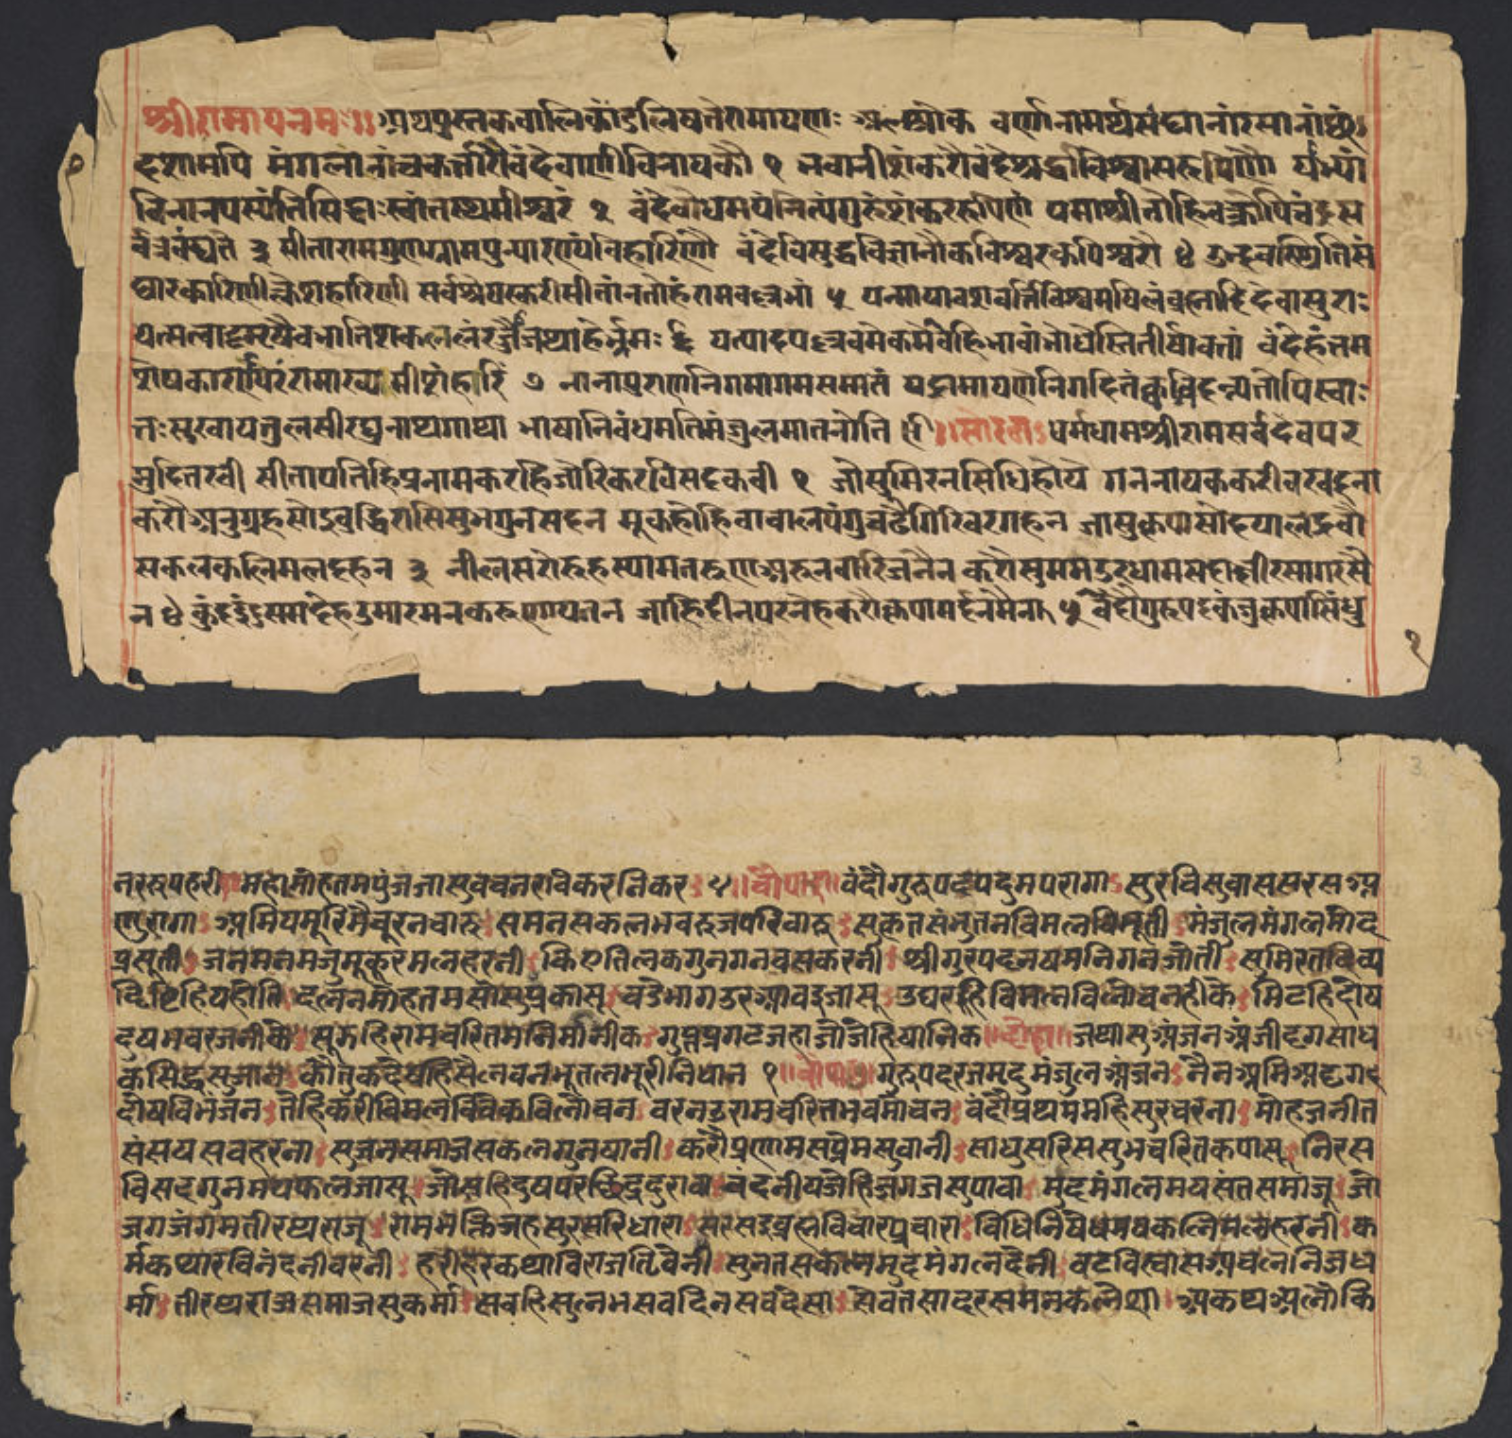 श्रीरामायनमः॥ अथपुस्तकवालिकांडलिषतेरामायणः श्रलाश्लोक वर्णानामर्थसंघानांरसानांछंद
दशामपि मंगलानांचकर्त्तारौवंदेवाणीविनायकौ १ भवानीशंकरौवंदेश्रद्धाविश्वासरूपिणौ याभ्यां
विनानपस्यंतिसिद्धाःस्वांतस्थमीश्वरं २ वंदेवोधमयंनित्यंगुरुंशंकररूपिणं यमाश्रीतोहिवक्रोपिचंद्रस
र्वत्रवंद्यते ३ सीतारामगुणग्रामपुन्यारण्यविहारिणौ वंदेविसुद्धविज्ञानौकविश्वरकपिश्वरौ ४ उद्भवस्थितिसं
घारकारिणीक्लेशहारिणी सर्वश्रेयस्करीसीतांनतोहंरामवल्लभां ५ यन्मायावशवर्त्तिविश्वमषिलंव्रह्मादिदेवासुराः
यत्सत्वादमृषैवभातिशकललंरज्जौजथाहेर्भ्रमः ६ यत्पादपल्लवमेकमेवहिभावांभोधेस्तितीर्षावतां वंदेहंतम
शेषकारणपरंरामाख्यमीशंहरिं ७ नानापुराणनिगमागमसमातं यद्रामायणेनिगदितंक्वचिदन्यतोपिस्वाः
तःसुखायतुलसीरघुनाथगाथा भाषानिवंधमतिमंजुलमातनोति ॥ सोरठा धर्मधामश्रीरामसर्वदेवपर
मुदितरवी सीतापतिहिप्रनामकरहिजोरिकरविसदकवी १ जोसुमिरनसिधिहोय गननायककरीवरवदना
करौअनुग्रहसोइवुद्धिरासिसुभगुनसदन मूकहोहिवाचालपंगुचढैगिरिवरगहन जासुकृपासोदयालद्रवौ
सकलकलिमलदहन ३ नीलसरोरुहस्यामतरुणअरुनवारिजनैन करौसुममउरधामसदाक्षीरसागरसै
न ४ कुंदइंदुसमदेहउमारमनकरुणायतन जाहिदीनपरनेहकरौकृपामर्दनमैन ५ वंदौगुरुपदकंजकृपासिंधु
१
नररूपहरी महामोहतमपुंजजासुवचनरविकरनिकर ५ ॥चौपाई॥ वंदौगुरुपदपदुमपरागा सुरविसुवाससरसअ
णुरागा अमियमूरिमैचूरनचारु समनसकलभवरुजपरिवारु सुकृतसंभुतनविमलविभूती मंजुलमंगलमोद
प्रसूती जनमनमजुमुकुरमलहरनी किएतिलकगुनगनवसकरनी श्रीगुरपदनषमनिगनजोती सुमिरतदिव्य
दिष्टिहियहोति दलनमोहतमसोसुप्रकासू वडेभागउरआवइजासू उघरहिविमलविलोचनहीके मिटहिदोष
दुषभवरजनीके सूझहिरामचरितमनिमानीक गुप्तप्रगटजहाजोजेहिषानिक ॥दोहा॥ जथासुअंजनअंजीदृगसाध
कसिद्धसुजान कौतकदेषहिसैलवनभूतलभूरीनिधान १ ॥चौपाई॥ गुरुपदरजमृदुमंजुलअंजन नैनअमिअदृग
दोषविभंजन तेहिकरीविमलविवेकविलोचन वरनउरामचरितभवमोचन वंदौप्रथममहिसुरचरना मोहजनीत
संसयसवहरना सुजनसमाजसकलगुनषानी करौप्रणामसप्रेमसुवानी साधुसरिससुभचरितकपासू निरस
विसदगुनमयफलजासू जोसहिदुषपरछिद्रदुरावा वंदनीयजेहिजगजसुपावा मुदमंगलमयसंतसमाजू जो
जगजंगमतीरथराजू रामभक्तिजहसुरसरिधारा सरसइव्रह्मविचारप्रचारा विधिनिषेधमयकलिमलहरनी क
र्मकथारविनंदनीवरनी हरीहरकथाविराजतिवेनी सुनतसकलमुदमंगलदेनी वटविस्वासअचलनिजध
र्मा तीरथराजसमाजसुकर्मा सवहिसुलभसवदिनसवदेसा सेवतसादरसमनकलेशा अकथअलौकि